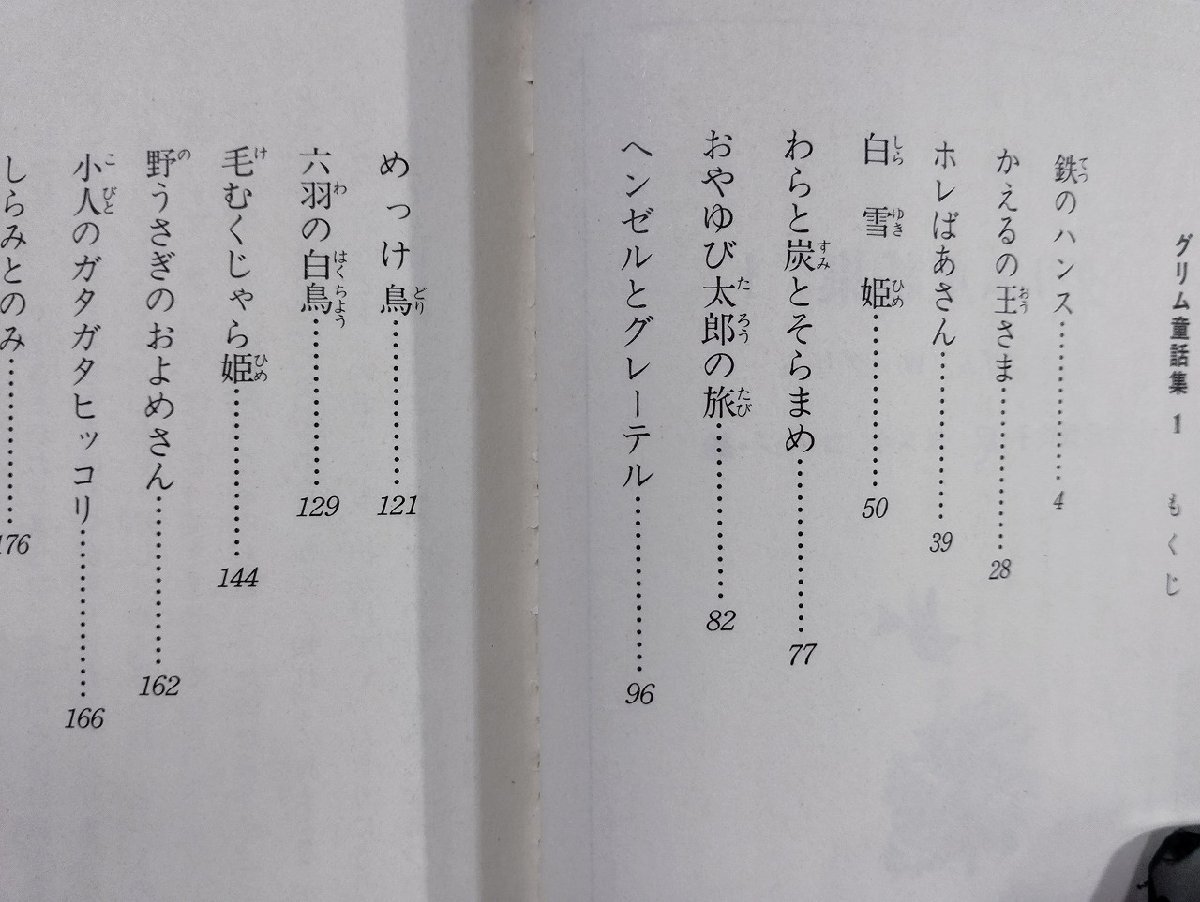 グリム童話集 1 もくじ
鉄のハンス………………4
かえるの王さま………………28
ホレばあさん………………39
白雪姫………………50
わらと炭とそらまめ………………77
おやゆび太郎の旅………………82
ヘンゼルとグレーテル………………96
めっけ鳥………………121
六羽の白鳥………………129
毛むくじゃら姫………………144
野うさぎのおよめさん………………162
小人のガタガタヒッコリ………………166
しらみとのみ………………176